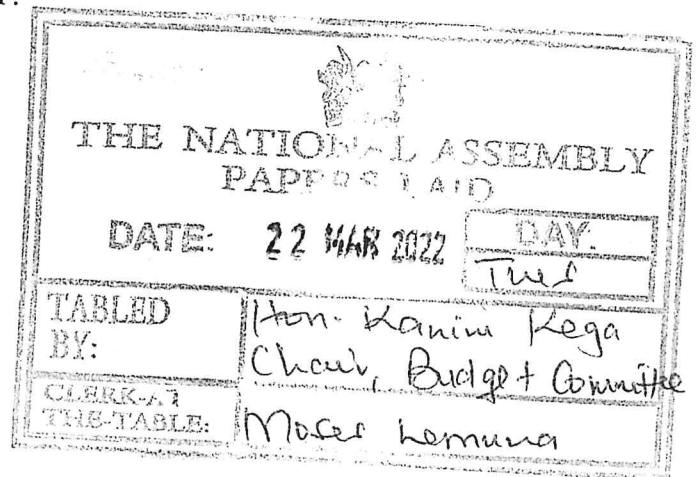 THE NATIONAL ASSEMBLY
PAPERS LAID
DATE: 22 MAR 2022 DAY:
Tues
TABLED BY: Hon. Kanini Kega
Chair, Budget Committee
CLERK-AT THE-TABLE: Moses Lemuna